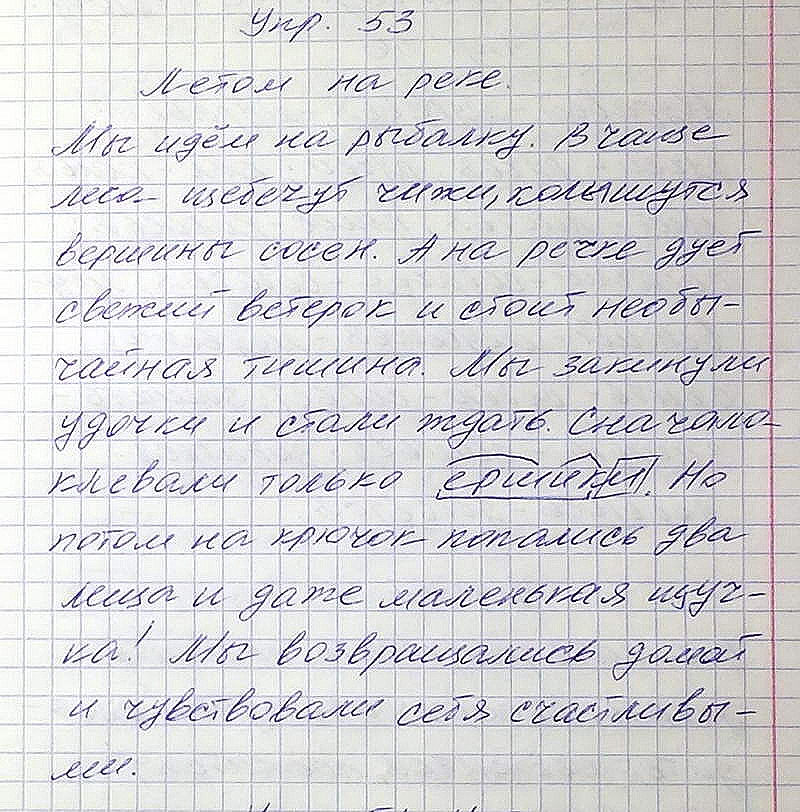 Упр. 53
Летом на реке.
Мы идём на рыбалку. В чаще
леса щебечут чижи, колышутся
вершины сосен. А на речке дует
свежий ветерок и стоит необы-
чайная тишина. Мы закинули
удочки и стали ждать. Сначала
клевали только ершики. Но
потом на крючок попались два
леща и даже маленькая щуч-
ка! Мы возвращались домой
и чувствовали себя счастливы-
ми.